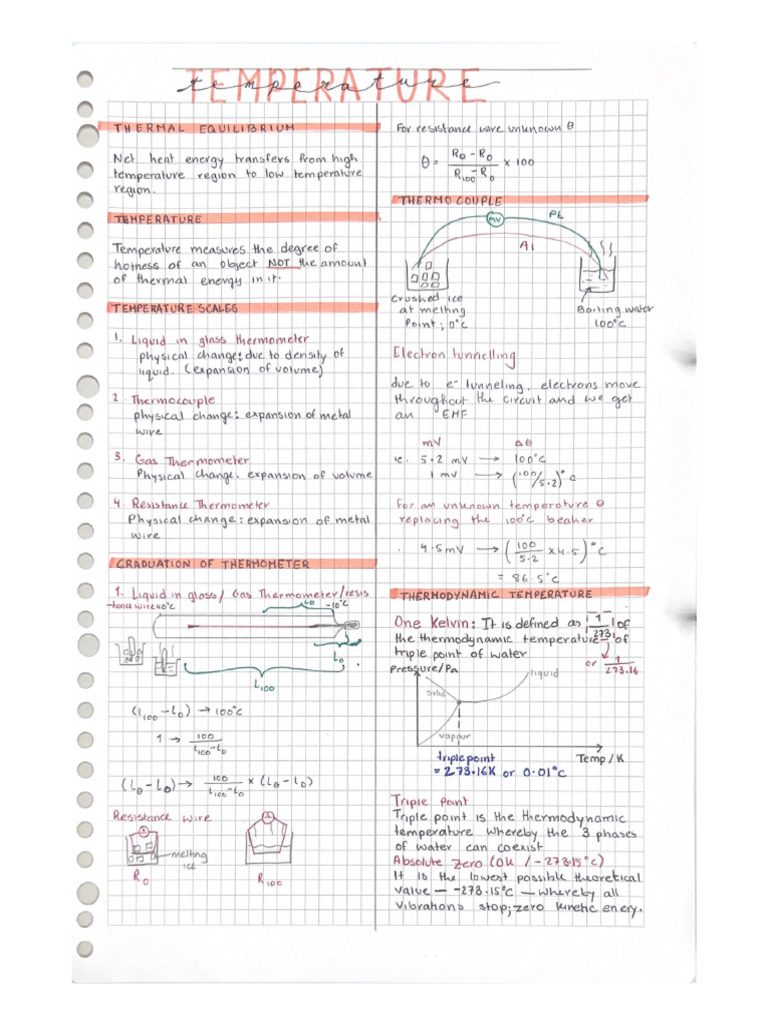 TEMPERATURE
temperature
THERMAL EQUILIBRIUM
Net heat energy transfers from high
temperature region to low temperature
region.
TEMPERATURE
Temperature measures the degree of
hotness of an object NOT the amount
of thermal energy in it.
TEMPERATURE SCALES
1. Liquid in glass thermometer
physical change: due to density of
liquid. (expansion of volume)
2. Thermocouple
physical change: expansion of metal
wire
3. Gas Thermometer
Physical change. expansion of volume
4. Resistance Thermometer
Physical change: expansion of metal
wire
GRADUATION OF THERMOMETER
1. Liquid in glass/ Gas Thermometer/resis
-tance wire
-10°C
Lθ
L0
L100
(L100 - L0) → 100°C
1 → 100/L100-L0
(Lθ - L0) → 100/L100-L0 × (Lθ - L0)
Resistance wire
melting
ice
R0
R100
For resistance wire unknown θ
θ = Rθ - R0/R100 - R0 × 100
THERMO COUPLE
mV
Pt
Al
Crushed ice
at melting
Point; 0°C
Boiling water
100°C
Electron tunnelling
due to e⁻ tunneling, electrons move
throughout the circuit and we get
an EMF
mV Δθ
ie. 5.2 mV → 100°C
1 mV → (100/5.2)°C
For an unknown temperature θ
replacing the 100°C beaker
4.5mV → (100/5.2 × 4.5)°C
= 86.5°C
THERMODYNAMIC TEMPERATURE
One Kelvin: It is defined as 1/273 of
the thermodynamic temperature of
triple point of water
or 1/273.16
Pressure/Pa
solid
liquid
vapour
Temp/K
triple point
= 273.16K or 0.01°C
Triple Point
Triple point is the thermodynamic
temperature whereby the 3 phases
of water can coexist
Absolute Zero (0K / -273.15°C)
It is the lowest possible theoretical
value — -273.15°C — whereby all
vibrations stop; zero kinetic enery.